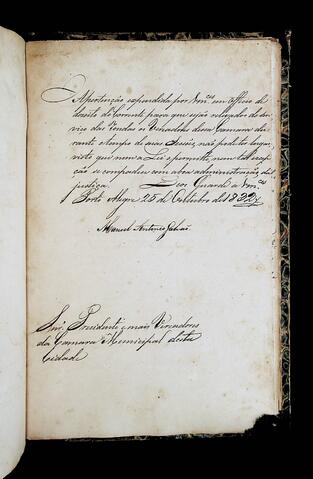 A pertenção expendida por Vm.ces em officio de
dezoito do Corrente para que sejão relevados do
das Rondas os Vereadores dessa Camara du
rante o tempo de suas Sessões, não pode ter lugar,
visto que nem a Lei o permitte, nem tal excep
ção se compadece com a boa administração da
justiça. Deos Guarde a Vm.ces
Porto Alegre 25 de Outubro de 1832
Manoel Antonio Galvão
Snr.es Prezidente e mais Vereadores
da Camara Municipal desta
Cidade